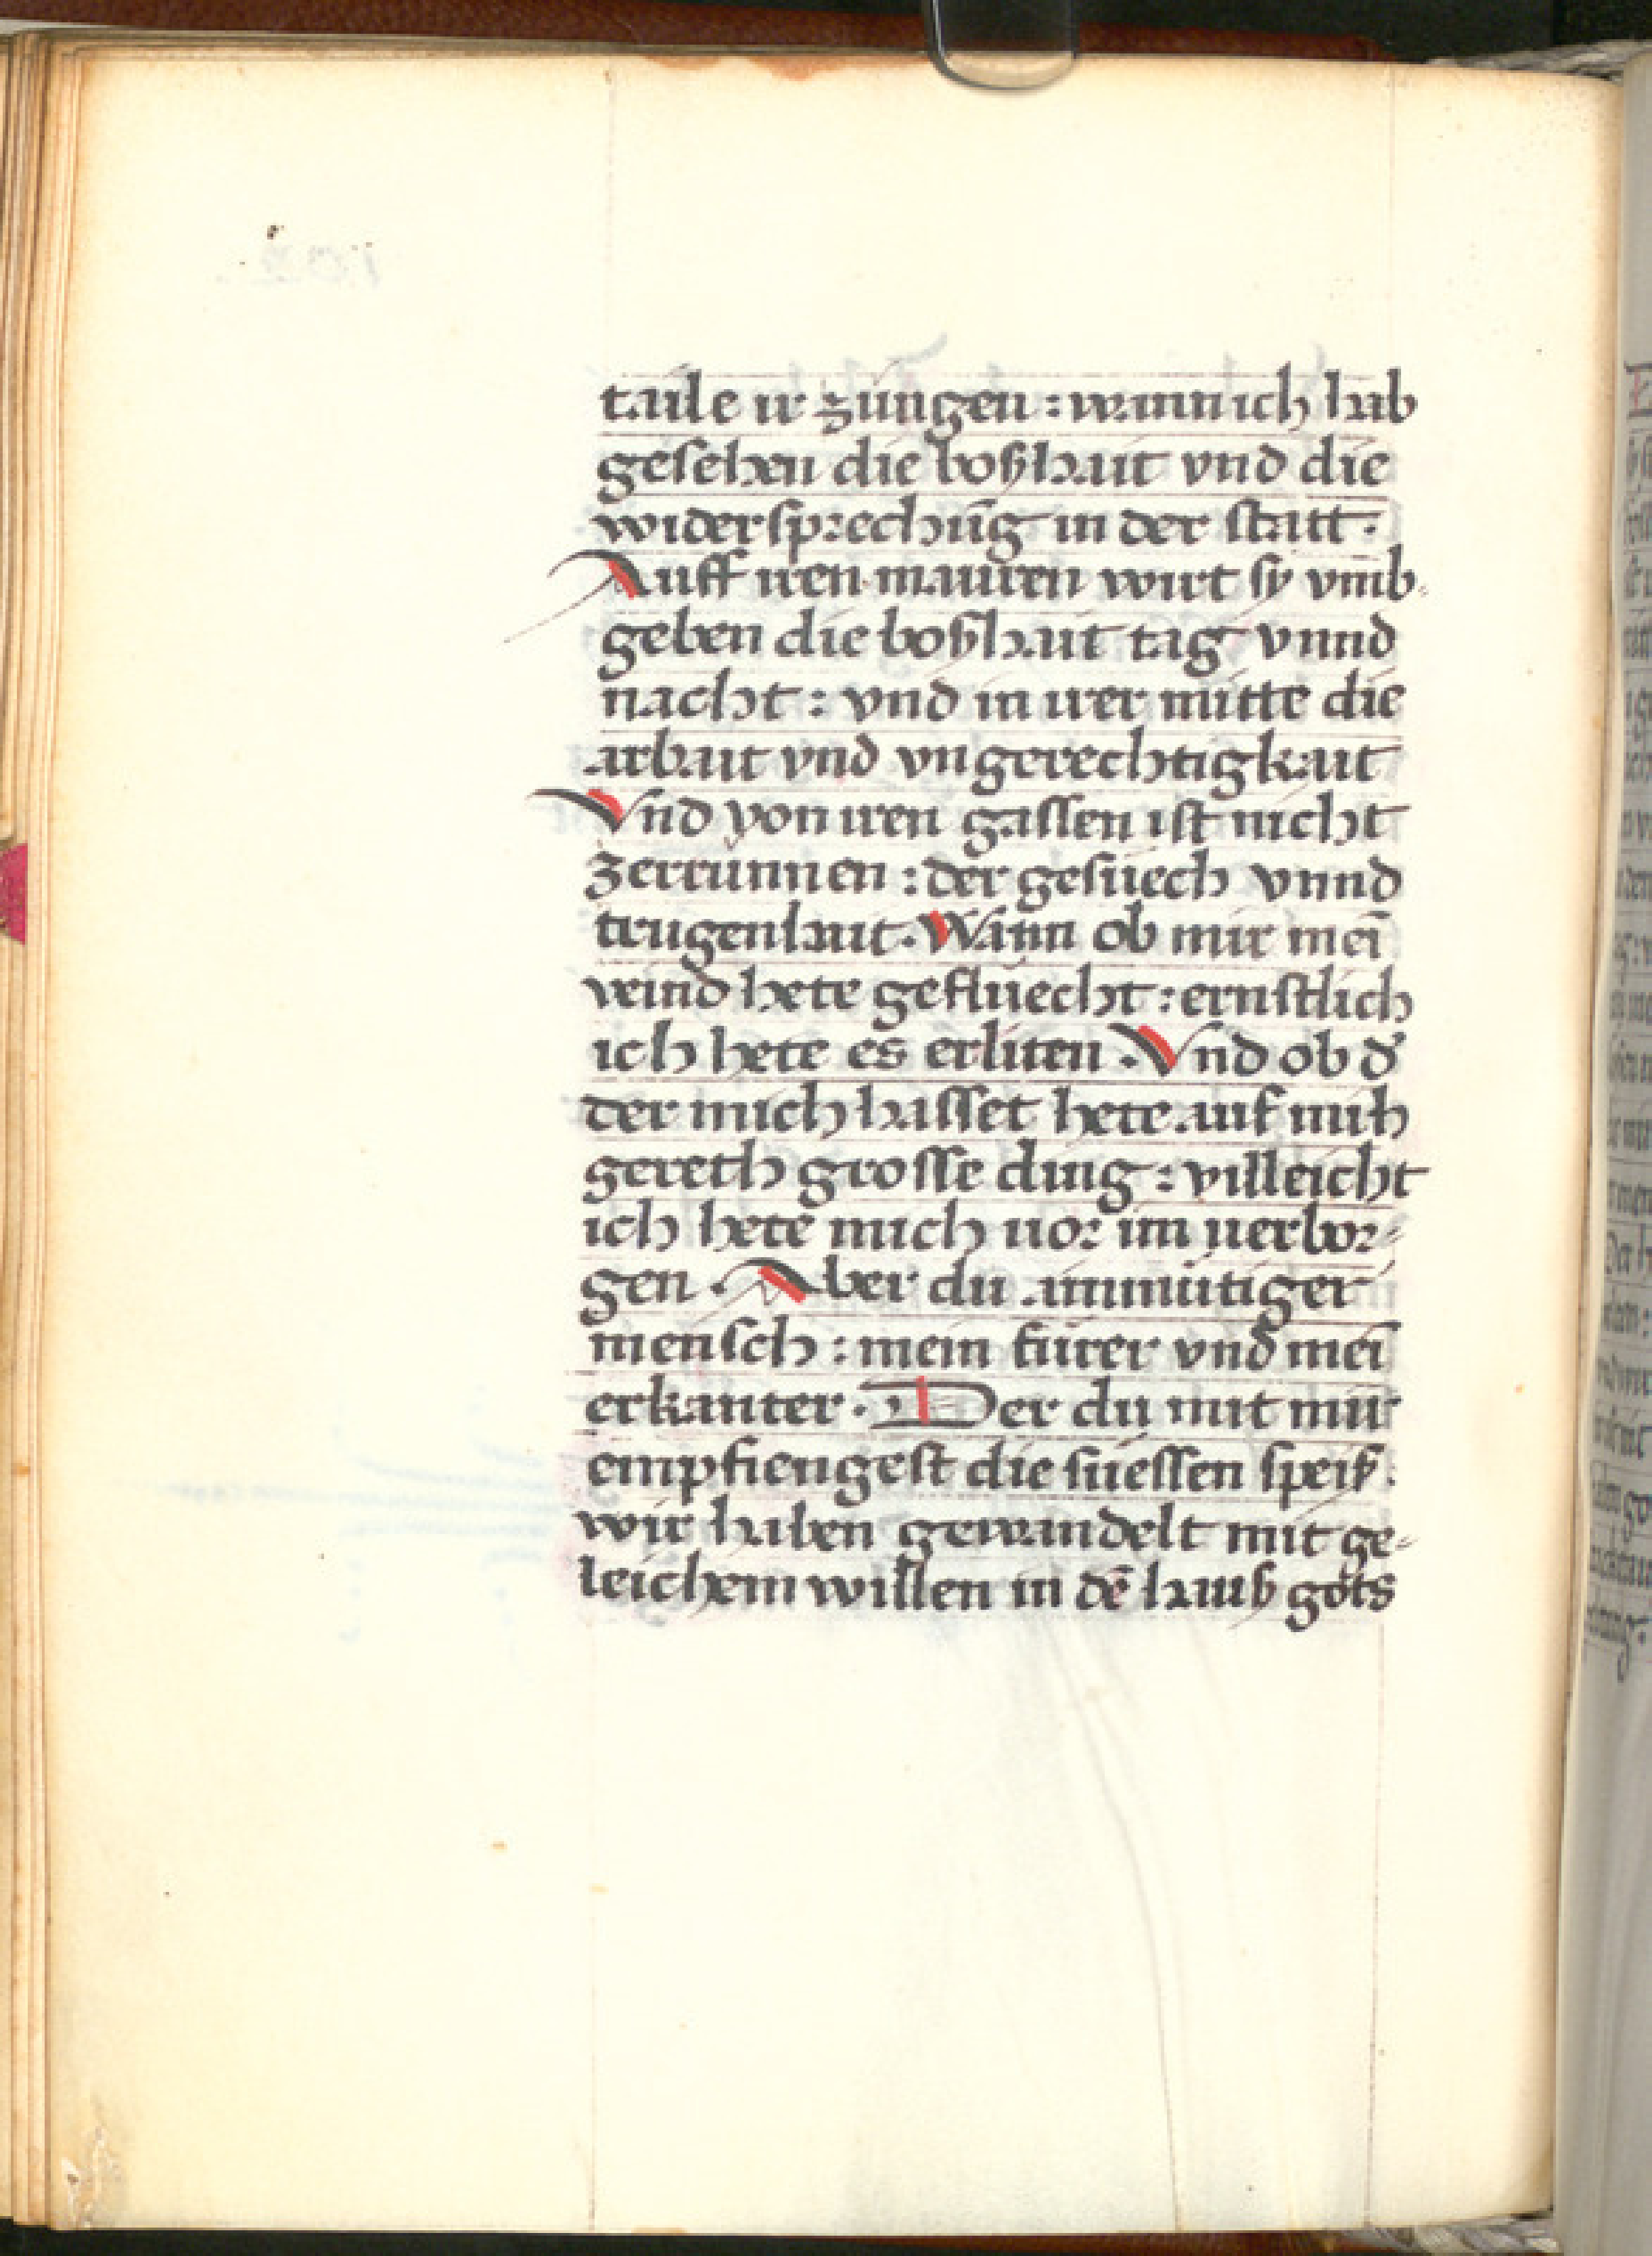 taile ir zungen : wann ich hab
gesehen die boßhait vnd die
widersprechūg in der statt ·
Auff iren mauren wirt sy vmb-
geben die boßhait tag vnnd
nacht : vnd in irer mitte die
arbait vnd vngerechtigkait
Vnd von iren gassen ist nicht
zerrunnen : der gesuech vnnd
trugenhait · Wann ob mir mei͂
veind hete gefluecht : ernstlich
ich hete es erliten · Vnd ob d'
der mich hasset hete auf mih
gereth grosse ding : villeicht
ich hete mich uor im uerbor-
gen · Aber du ainmutiger
mensch : mein furer vnd mei͂
erkanter · Der du mit mir
empfiengest die suessen speiß ·
wir haben gewandelt mit ge-
leichem willen in dē hauß gots